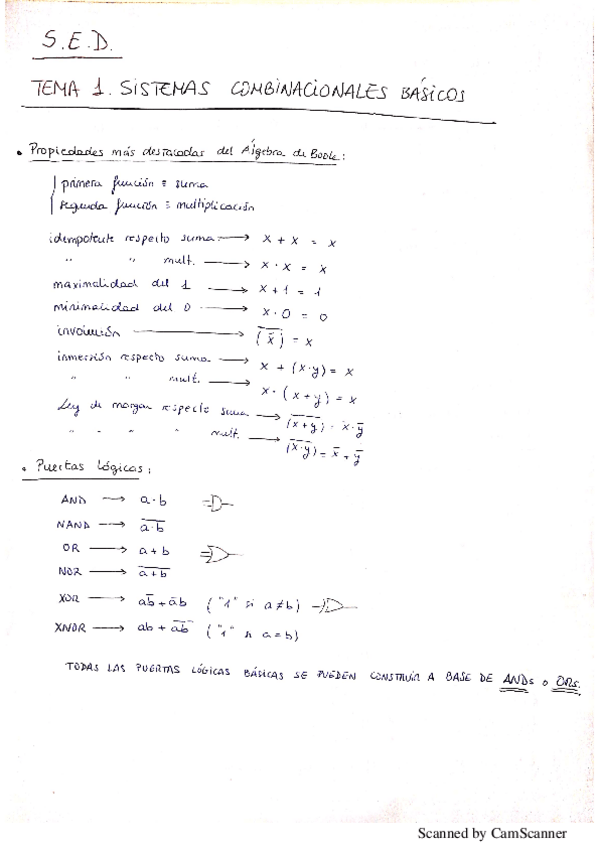 S.E.D.
TEMA 1. SISTEMAS COMBINACIONALES BÁSICOS
• Propiedades más destacadas del Álgebra de Boole:
primera función ≡ suma
segunda función ≡ multiplicación
idempotente respecto suma → x + x = x
" " mult. → x · x = x
maximalidad del 1 → x + 1 = 1
minimalidad del 0 → x · 0 = 0
involución → \overline{(\overline{x})} = x
inmersión respecto suma → x + (x·y) = x
" " mult. → x · (x + y) = x
Ley de morgan respecto suma → \overline{(x+y)} = \overline{x}·\overline{y}
" " " " mult. → \overline{(x·y)} = \overline{x} + \overline{y}
• Puertas Lógicas:
AND → a·b
NAND → \overline{a·b}
OR → a + b
NOR → \overline{a+b}
XOR → a\overline{b} + \overline{a}b ("1" si a≠b)
XNOR → ab + \overline{ab} ("1" si a=b)
TODAS LAS PUERTAS LÓGICAS BÁSICAS SE PUEDEN CONSTRUIR A BASE DE ANDs o ORs.
Scanned by CamScanner